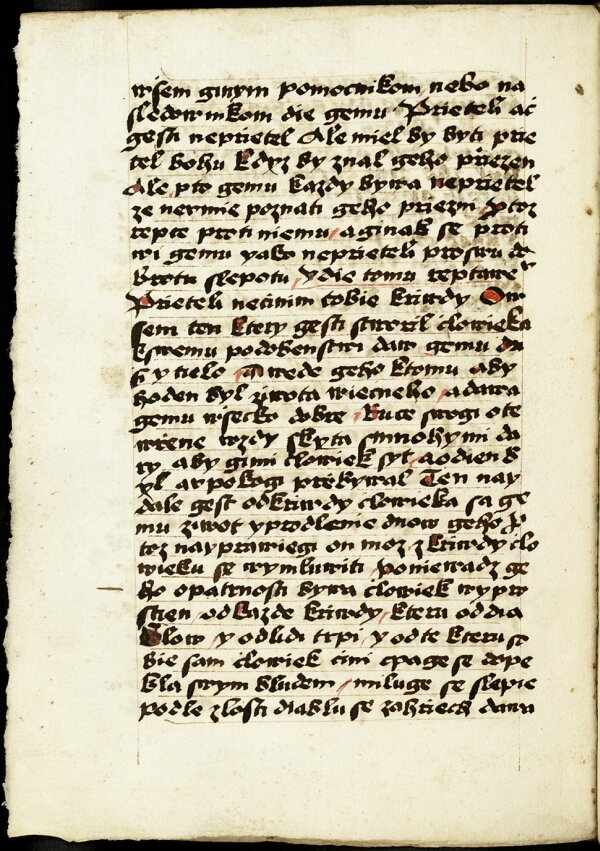 wſem ginym pomocnikom nebo na
ſledownikom die gemu Prieteli ač
geſti neprietel Ale miel by byti prie
tel bohu kdyz by znal geho priezen
Ale pto gemu kazdy bywa neprietel
ze nevmie poznati geho priezni Protoz
repce proti niemu a ginak ſe proti
wi gemu yako neprieteli proſwu do
brotu ſlepotu Ydie tomu reptawe
Prieteli necinim tobie kriwdy On
ſem ten ktery geſti ſtworil clowieka
kſwemu podobenſtwi daw gemu du
ſſi y tielo Awede geho ktomu aby
hoden byl ziwota wiecneho a dawa
gemu wſecko dobre Ruce ſwogi ote
wrene wzdy ſkyta ſmnohymi da
ry aby gimi clowiek ſyt a odien b
yl a wpokogi prebywal Ten nay
dale geſt odkriwdy clowieka ſa ge
mu ziwot y prodlenie dnow geho Pr
toz nayprawiegi on moz z kriwdy clo
wieku ſe wymluwiti poniewadz ge
ho opatrnoſti bywa clowiek wypro
ſtien od kazde kriwdy kteru od dia
blow y od lidi trpi y od te kteru ſo
bie ſam clowiek cini cpage ſe dope
kla ſwym bludem miluge ſe ſlepie
podle zloſti diablu ſe zahrziech dawa